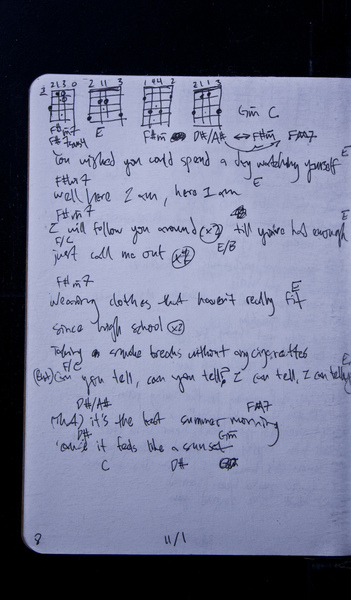 2 1 3 0 2 1 1 3 1 4 2 2 1 1 3
2
F#m7 E F#m D#/A# ↔ F#m F#A7
F#7sus4 Gm C
You wished you could spend a day watching yourself
F#m7 E
well here I am, here I am
F#m7 E
I will follow you around (x2) till you've had enough
F/C E/B
just call me out (x4)
F#m7 E
Wearing clothes that haven't really fit
since high school (x2)
Taking smoke breaks without any cigarettes
F/C E
(But) Can you tell, can you tell? I can tell, I can tell
D#/A# F#A7
(that) it's the best summer morning
D# Gm
'cause it feels like a sunset
C D#
8 11/1